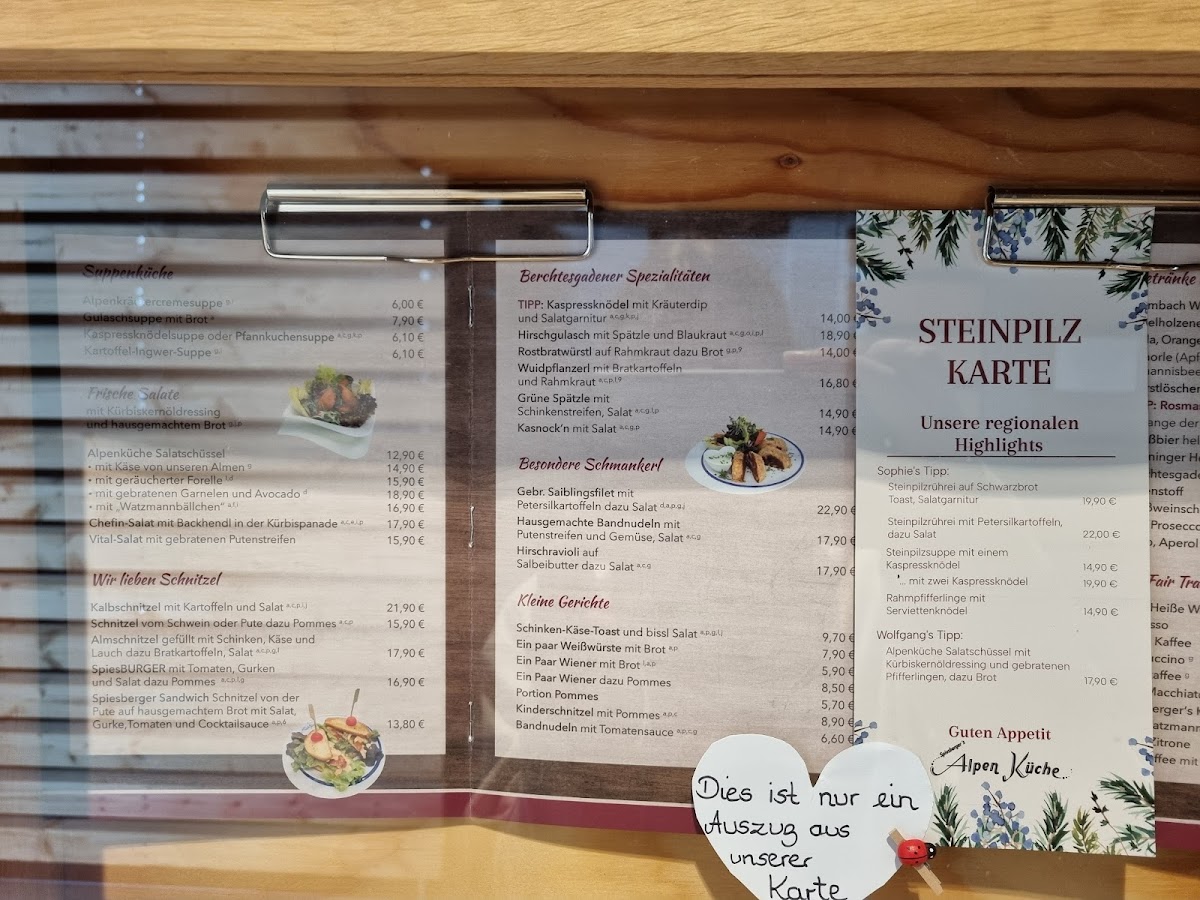 Suppenküche
Alpenkräutercremesuppe g,i 6,00 €
Gulaschsuppe mit Brot a 7,90 €
Kaspressknödelsuppe oder Pfannkuchensuppe a,c,g,k,p 6,10 €
Kartoffel-Ingwer-Suppe g,i 6,10 €
Frische Salate
mit Kürbiskernöldressing
und hausgemachtem Brot g,l,p
Alpenküche Salatschüssel 12,90 €
• mit Käse von unseren Almen g 14,90 €
• mit geräucherter Forelle 1,d 15,90 €
• mit gebratenen Garnelen und Avocado d 18,90 €
• mit „Watzmannbällchen“ a,f,i 16,90 €
Chefin-Salat mit Backhendl in der Kürbispanade a,c,e,i,p 17,90 €
Vital-Salat mit gebratenen Putenstreifen 15,90 €
Wir lieben Schnitzel
Kalbschnitzel mit Kartoffeln und Salat a,c,p,i,j 21,90 €
Schnitzel vom Schwein oder Pute dazu Pommes a,c,p 15,90 €
Almschnitzel gefüllt mit Schinken, Käse und
Lauch dazu Bratkartoffeln, Salat a,c,p,g,l 17,90 €
SpiesBURGER mit Tomaten, Gurken
und Salat dazu Pommes a,c,p,l,g 16,90 €
Spiesberger Sandwich Schnitzel von der
Pute auf hausgemachtem Brot mit Salat,
Gurke,Tomaten und Cocktailsauce 13,80 €
Berchtesgadener Spezialitäten
TIPP: Kaspressknödel mit Kräuterdip
und Salatgarnitur a,c,g,k,p,j 14,00 €
Hirschgulasch mit Spätzle und Blaukraut a,c,g,o,i,p,l 18,90 €
Rostbratwürstl auf Rahmkraut dazu Brot g,p,9 14,00 €
Wuidpflanzerl mit Bratkartoffeln
und Rahmkraut a,c,p,1,9 16,80 €
Grüne Spätzle mit
Schinkenstreifen, Salat a,c,g,l,p 14,90 €
Kasnock'n mit Salat a,c,g,p 14,90 €
Besondere Schmankerl
Gebr. Saiblingsfilet mit
Petersilkartoffeln dazu Salat d,a,p,g,j 22,90 €
Hausgemachte Bandnudeln mit
Putenstreifen und Gemüse, Salat a,c,g 17,90 €
Hirschravioli auf
Salbeibutter dazu Salat a,c,g 17,90 €
Kleine Gerichte
Schinken-Käse-Toast und bissl Salat a,p,g,l,j 9,70 €
Ein paar Weißwürste mit Brot a,p 7,90 €
Ein Paar Wiener mit Brot 1,a,p 5,90 €
Ein Paar Wiener dazu Pommes 8,50 €
Portion Pommes 5,70 €
Kinderschnitzel mit Pommes a,p,c 8,90 €
Bandnudeln mit Tomatensauce a,p,c,g 6,60 €
STEINPILZ
KARTE
Unsere regionalen
Highlights
Sophie's Tipp:
Steinpilzrührei auf Schwarzbrot
Toast, Salatgarnitur 19,90 €
Steinpilzrührei mit Petersilkartoffeln,
dazu Salat 22,00 €
Steinpilzsuppe mit einem
Kaspressknödel 14,90 €
"... mit zwei Kaspressknödel 19,90 €
Rahmpfifferlinge mit
Serviettenknödel 14,90 €
Wolfgang's Tipp:
Alpenküche Salatschüssel mit
Kürbiskernöldressing und gebratenen
Pfifferlingen, dazu Brot 17,90 €
Guten Appetit
Spiesberger's
Alpen Küche..
Dies ist nur ein
Auszug aus
unserer
Karte